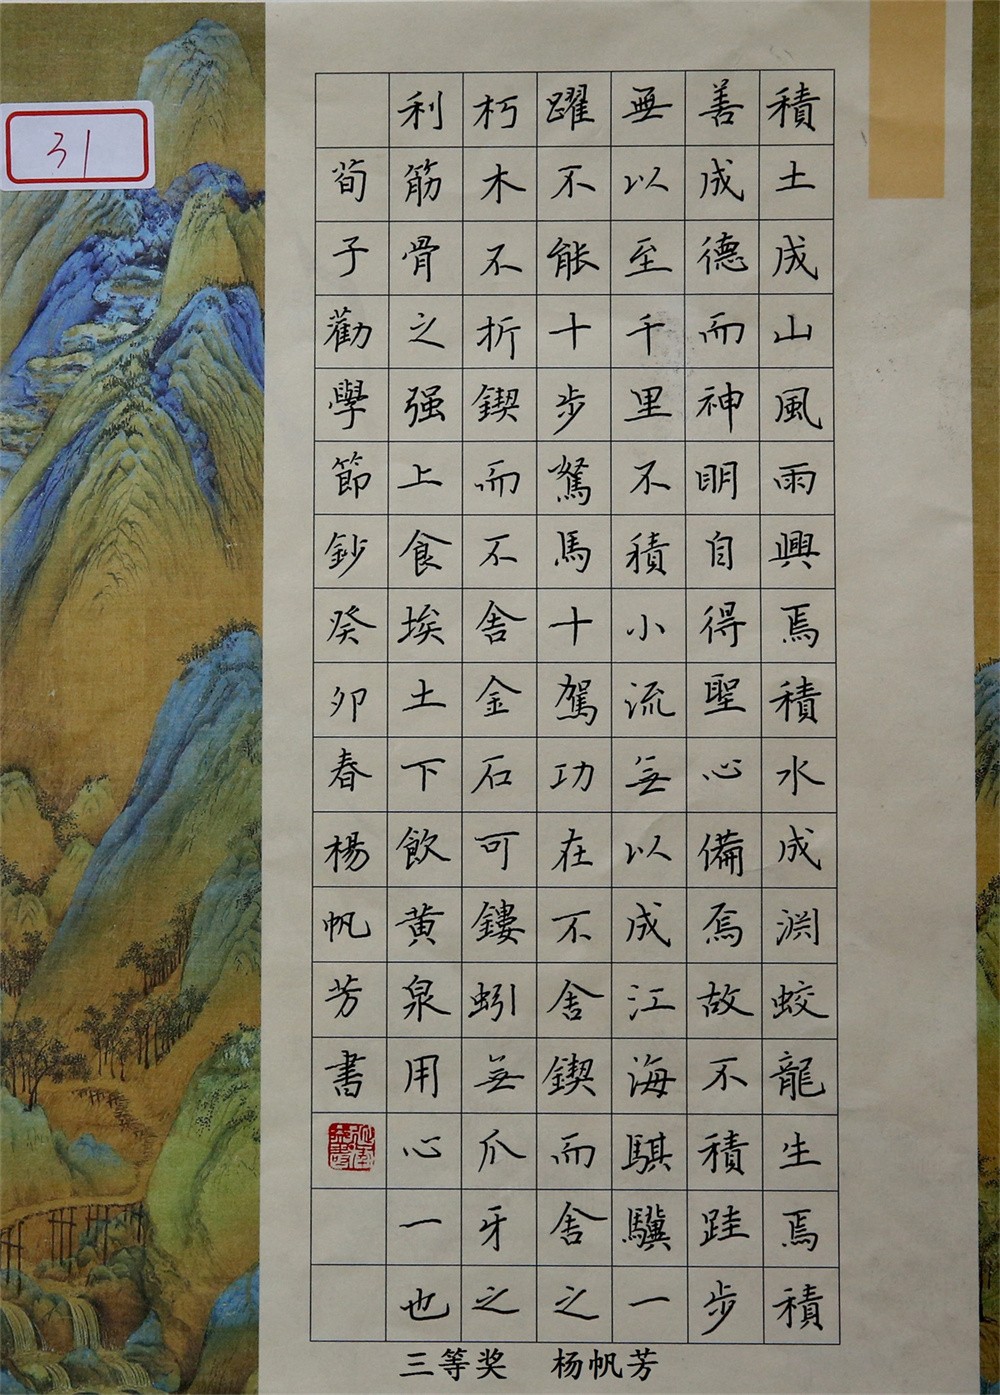 積土成山風雨興焉積水成淵蛟龍生焉積
善成德而神明自得聖心備焉故不積跬步
無以至千里不積小流無以成江海騏驥一
躍不能十步駑馬十駕功在不舍鍥而舍之
朽木不折鍥而不舍金石可鏤蚓無爪牙之
利筋骨之强上食埃土下飲黄泉用心一也
荀子勸學節鈔癸卯春楊帆芳書
31
三等奖 杨帆芳